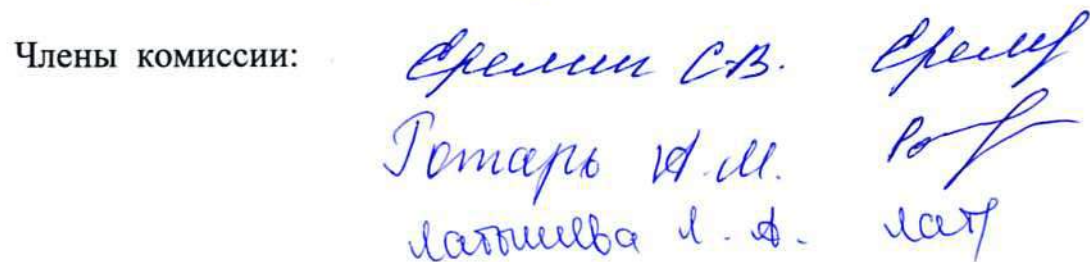 Члены комиссии: Еремин С.В. Ерем
Ротарь Н.М. Рот
Латышева Л.А. Лат